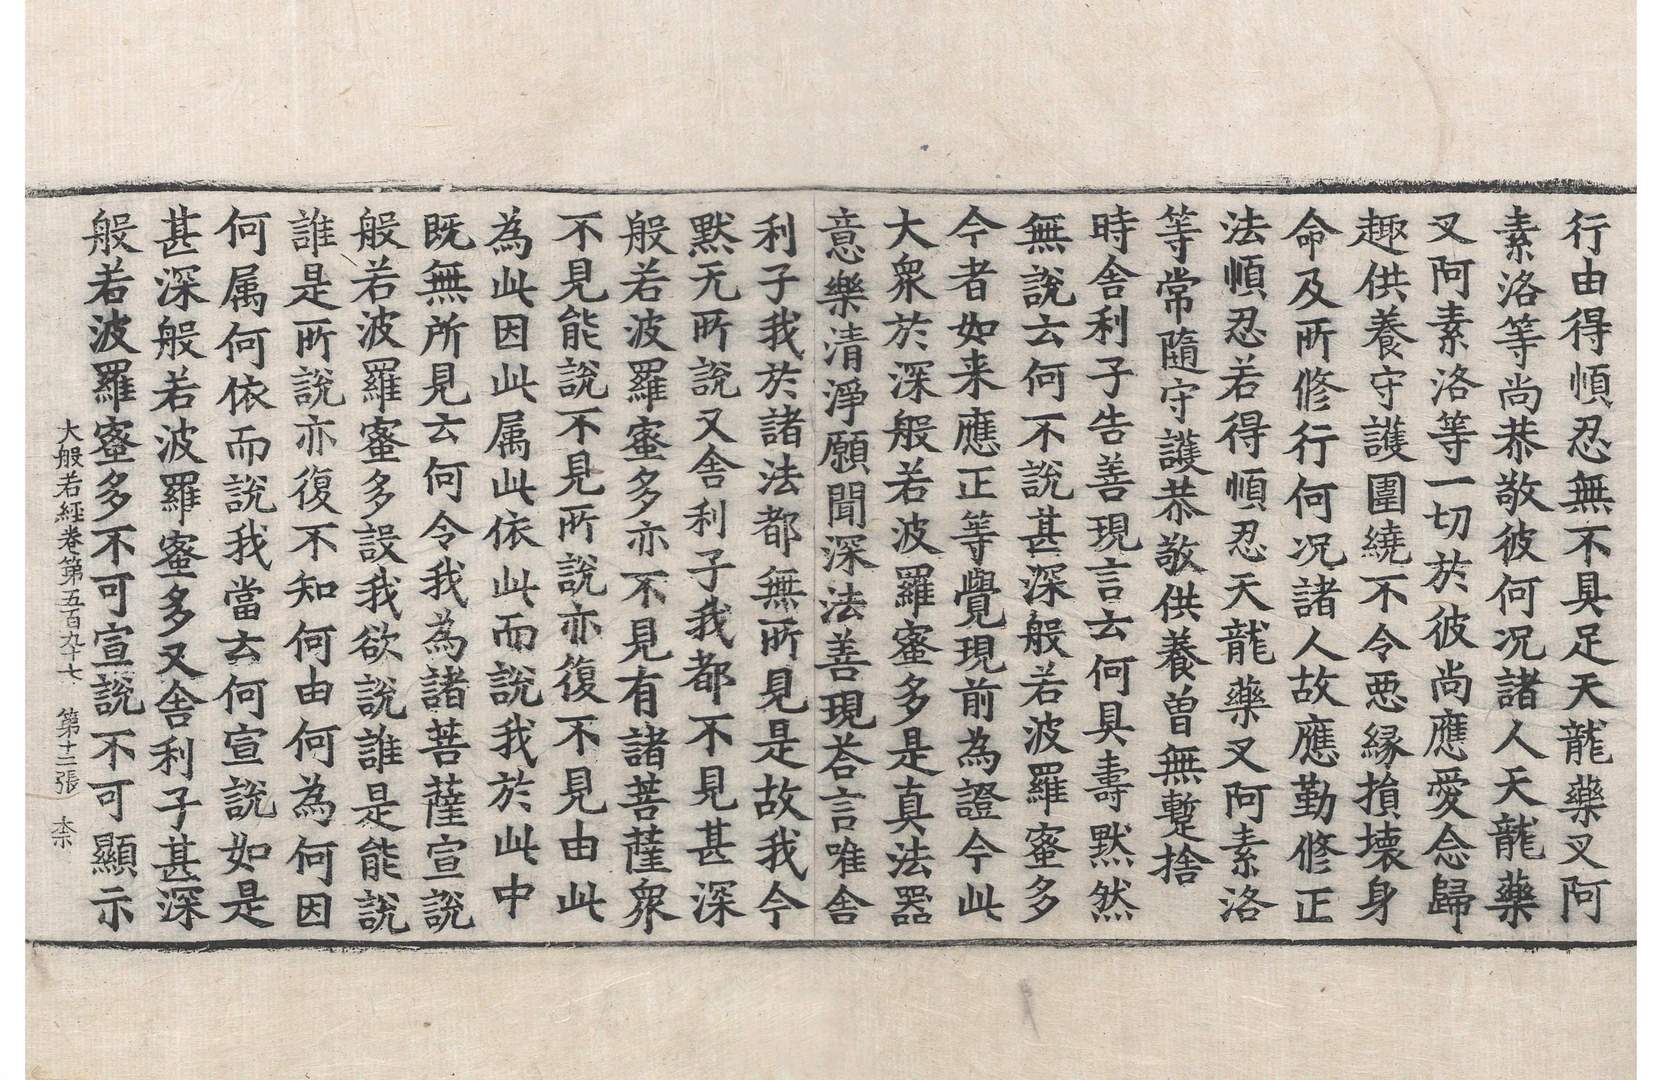 行由得順忍無不具足天龍藥叉阿
素洛等尚恭敬彼何况諸人天龍藥
叉阿素洛等一切於彼尚應愛念歸
趣供養守護圍繞不令惡緣損壞身
命及所修行何况諸人故應勤修正
法順忍若得順忍天龍藥叉阿素洛
等常隨守護恭敬供養曾無蹔捨
時舍利子告善現言云何具壽黙然
無說云何不說甚深般若波羅蜜多
今者如来應正等覺現前為證今此
大衆於深般若波羅蜜多是真法器
意樂清淨願聞深法善現荅言唯舍
利子我於諸法都無所見是故我今
黙无所說又舍利子我都不見甚深
般若波羅蜜多亦不見有諸菩薩衆
不見能說不見所說亦復不見由此
為此因此属此依此而說我於此中
既無所見云何令我為諸菩薩宣說
般若波羅蜜多設我欲說誰是能說
誰是所說亦復不知何由何為何因
何属何依而說我當云何宣說如是
甚深般若波羅蜜多又舍利子甚深
般若波羅蜜多不可宣說不可顯示
大般若經卷第五百九十七 第十二張 柰